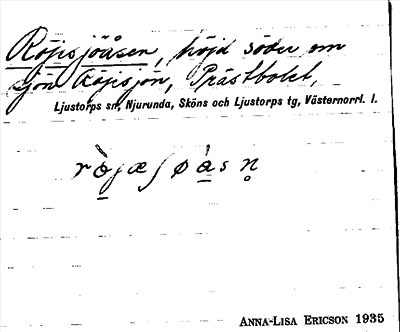 Röjisjöåsen, höjd söder om
sjön Röjisjön, Prästbolet,
Ljustorps sn, Njurunda, Sköns och Ljustorps tg, Västernorrl. l.
rò̱jæʃøà̱sn̥
ANNA-LISA ERICSON 1935